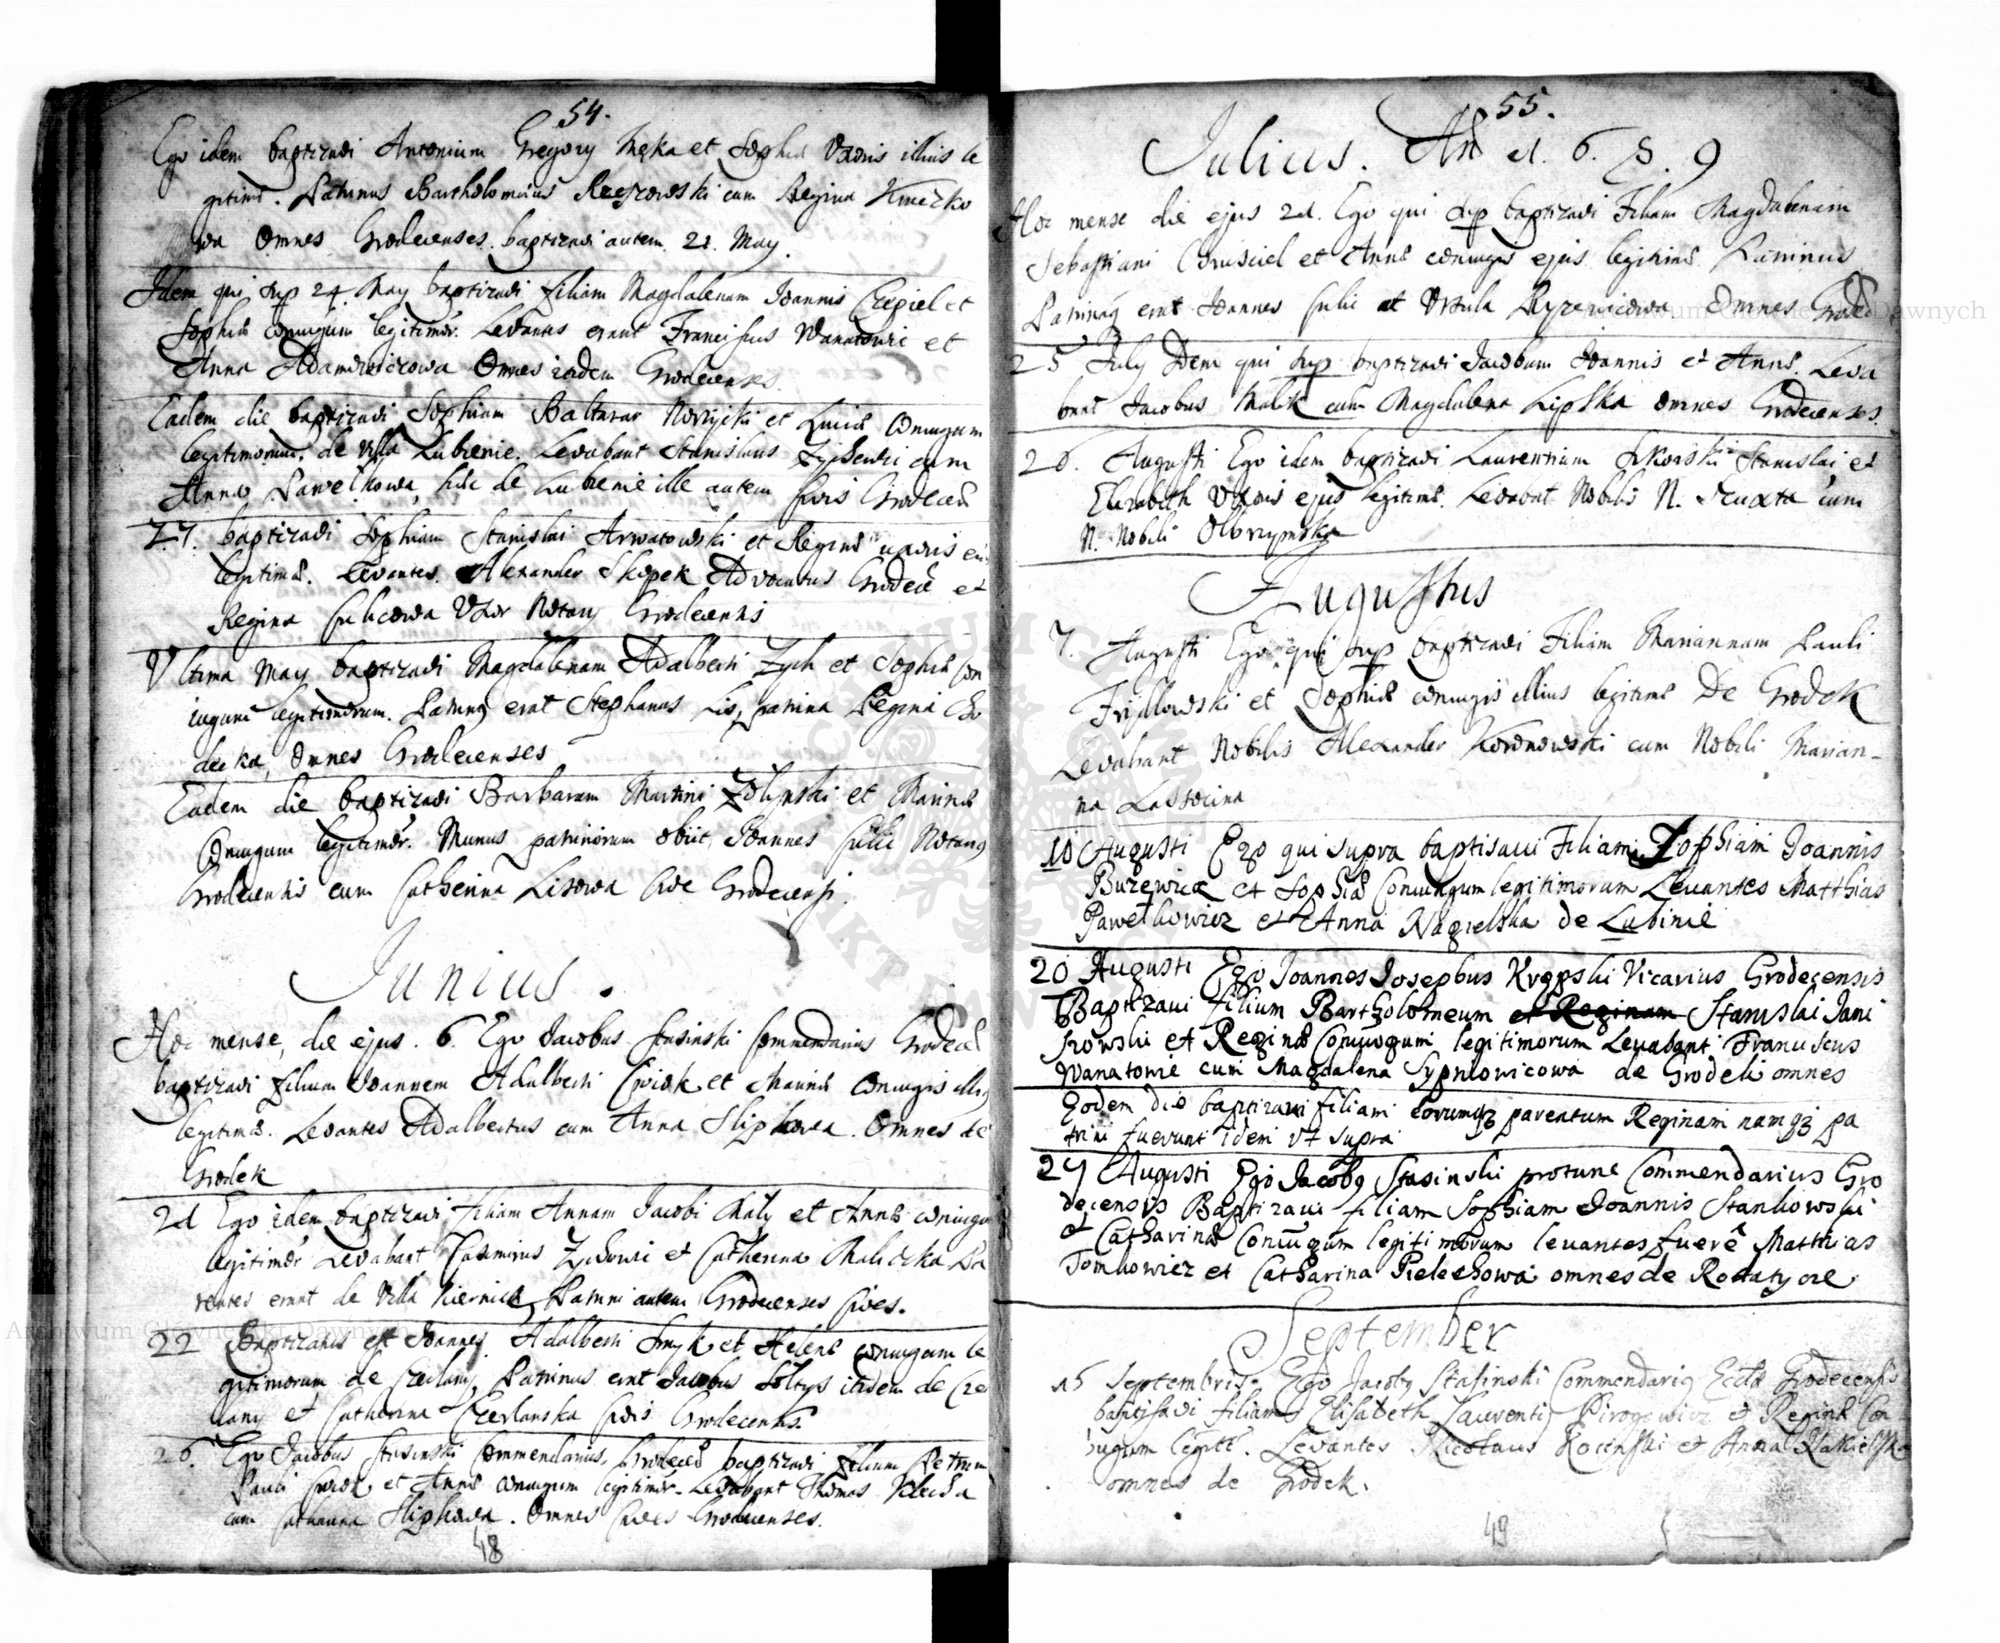 54.
Ego idem baptizavi Antonium Gregory Męka et Sophiæ Uxoris illius le
gitimæ. Patrinus Bartholomæus Rzeszowski cum Regina Kmiczko
wa Omnes Grodecenses. baptizavi autem 21. May.
Idem qui sup 24. May baptizavi filiam Magdalenam Joannis Czepiel et
Sophiæ coniugum legitimor. Levantes erant Franciscus Wanatowic et
Anna Adamowiczowa Omnes itidem Grodecenses.
Eadem die baptizavi Sophiam Baltazar Nowycki et Luciæ Coniugum
legitimorum. de villa Lubienie. Levabant Stanislaus cum
Anna Pawelkowa, hæc de Lubienie ille autem Civis Grodecen
27. baptizavi Sophiam Stanislai Arwatowski et Reginæ uxoris eius
legitimæ. Levantes. Alexander Skopek Advocatus Grodecen et
Regina Sulicowa Uxor Notary Grodecensis
Ultima May baptizavi Magdalenam Adalberti Zych et Sophiæ Con
iugum legitimorum. Patrinus erat Stephanus Lis, patrina Regina Cho
decka, Omnes Grodecenses
Eadem die baptizavi Barbaram Martini Zolynski et Marinæ
Coniugum legitimor. Munus patrinorum obiit Joannes Sulic Notarius
Grodecensis cum Catherina Lisowa Cive Grodecensi.
Junius.
Hoc mense, die ejus. 6. Ego Jacobus Stasinski Commendarius Grodecen
baptizavi filium Joannem Adalberti Cwiok et Marinæ Coniugis illius
legitimæ. Levantes Adalbertus cum Anna Slipkowa. Omnes de
Grodek
21 Ego idem baptizavi filiam Annam Jacobi Maly et Annæ coniugum
legitimor Levabant Casimirus Zydowic et Catherina Maliczka Pa
rentes erant de villa Kiernica Patrini autem Grodecenses Cives.
22 Baptizatus est Joannes Adalberti Smyk et Helenæ coniugum le
gitimorum de Czerlany, Patrinus erat Jacobus Soltys itidem de Czer
lany et Catherina Czerlanska Civis Grodecensis.
26. Ego Jacobus Stasinski Commendarius, Grodecen baptizavi filium Petrum
Pauli Cwiok et Annæ coniugum legitimor. Levabant Thomas
cum Catharina Slipkowa. Omnes Cives Grodecenses.
48
55.
Julius. An 1. 6. 8. 9
Hoc mense die ejus 21. Ego qui sup baptizavi Filiam Magdalenam
Sebastiani Chrusciel et Annæ coniugis ejus legitimæ. Patrinus
Patrinaq erat Joannes Sulic et Ursula Omnes Grodec
25 July Idem qui sup baptizavi Jacobum Joannis et Annæ. Leva
bant Jacobus Malik cum Magdalena Lipska omnes Grodecenses.
26. Augusti Ego idem baptizavi Laurentium Stanislai et
Elizabeth Uxoris ejus legitimæ. Levabat Nobilis N. cum
N. Nobili Olbrzymska
Augustus
7. Augusti Ego qui sup baptizavi Filiam Mariannam Pauli
et Sophiæ coniugis illius legitimæ De Grodek
Levabant Nobilis Alexander Koronowski cum Nobili Marian-
na Lassocina
10 Augusti Ego qui supra baptisaui Filiam Zophiam Joannis
Burzewicz et Sophiæ Coniungum legitimorum Leuantes Matthias
Pawelkowicz et Anna Nagielska de Lubinie
20 Augusti Ego Joannes Josephus Krzpski Vicarius Grodecensis
Baptizaui filium Bartholomeum et Reginam Stanislai Jani
szowski et Reginæ Coniugum legitimorum Leuabant Franciscus
Wanatowic cum Magdalena Sypniowicowa de Grodek omnes
Eodem die baptizaui filiam eorumq3 parentum Reginam namq3 pa
trini fuerunt idem vt supra
27 Augusti Ego Jacobq Stasinski protunc Commendarius Gro
decensis Baptizaui filiam Sophiam Joannis Stankowski
et Catharinæ Coniugum legitimorum leuantes fuerê Matthias
Tomkowicz et Catharina Pielechowa omnes de Rottatycze
September
15 Septembris. Ego Jacobq Stasinski Commendariq Eccłæ Grodecensis
baptisavi filiam Elisabeth Laurenti Pirogowicz et Reginæ Con
iugum legitt. Levantes Nicolaus Kocinski et Anna Nakielska
omnes de Grodek.
49